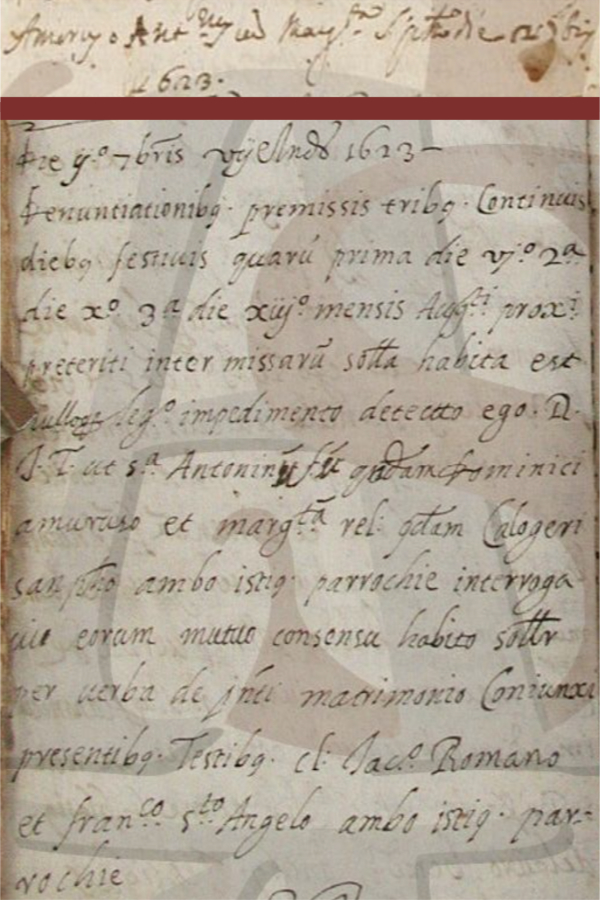 1623.
Die 7bris Ind 1623
Denuntiationibq. premissis tribq. Continuis
diebq. festiuis quarũ prima die vjº 2ª
die xº 3ª die xiijº mensis Augti proxi
preteriti inter missarũ solla habita est
nulloqz legº impedimento detectto ego. D.
J. T. ut sª Antoninũ fũ qdam Dominici
amuruso et margta rel: qdam Calogeri
san pho ambo istiq. parrochie interroga
ui eorum mutuo consensu habito sollr
per uerba de pnti matrimonio Coniunxi
presentibq. Testibq. cl. Jacº Romano
et francº sto Angelo ambo istiq. par-
rochie